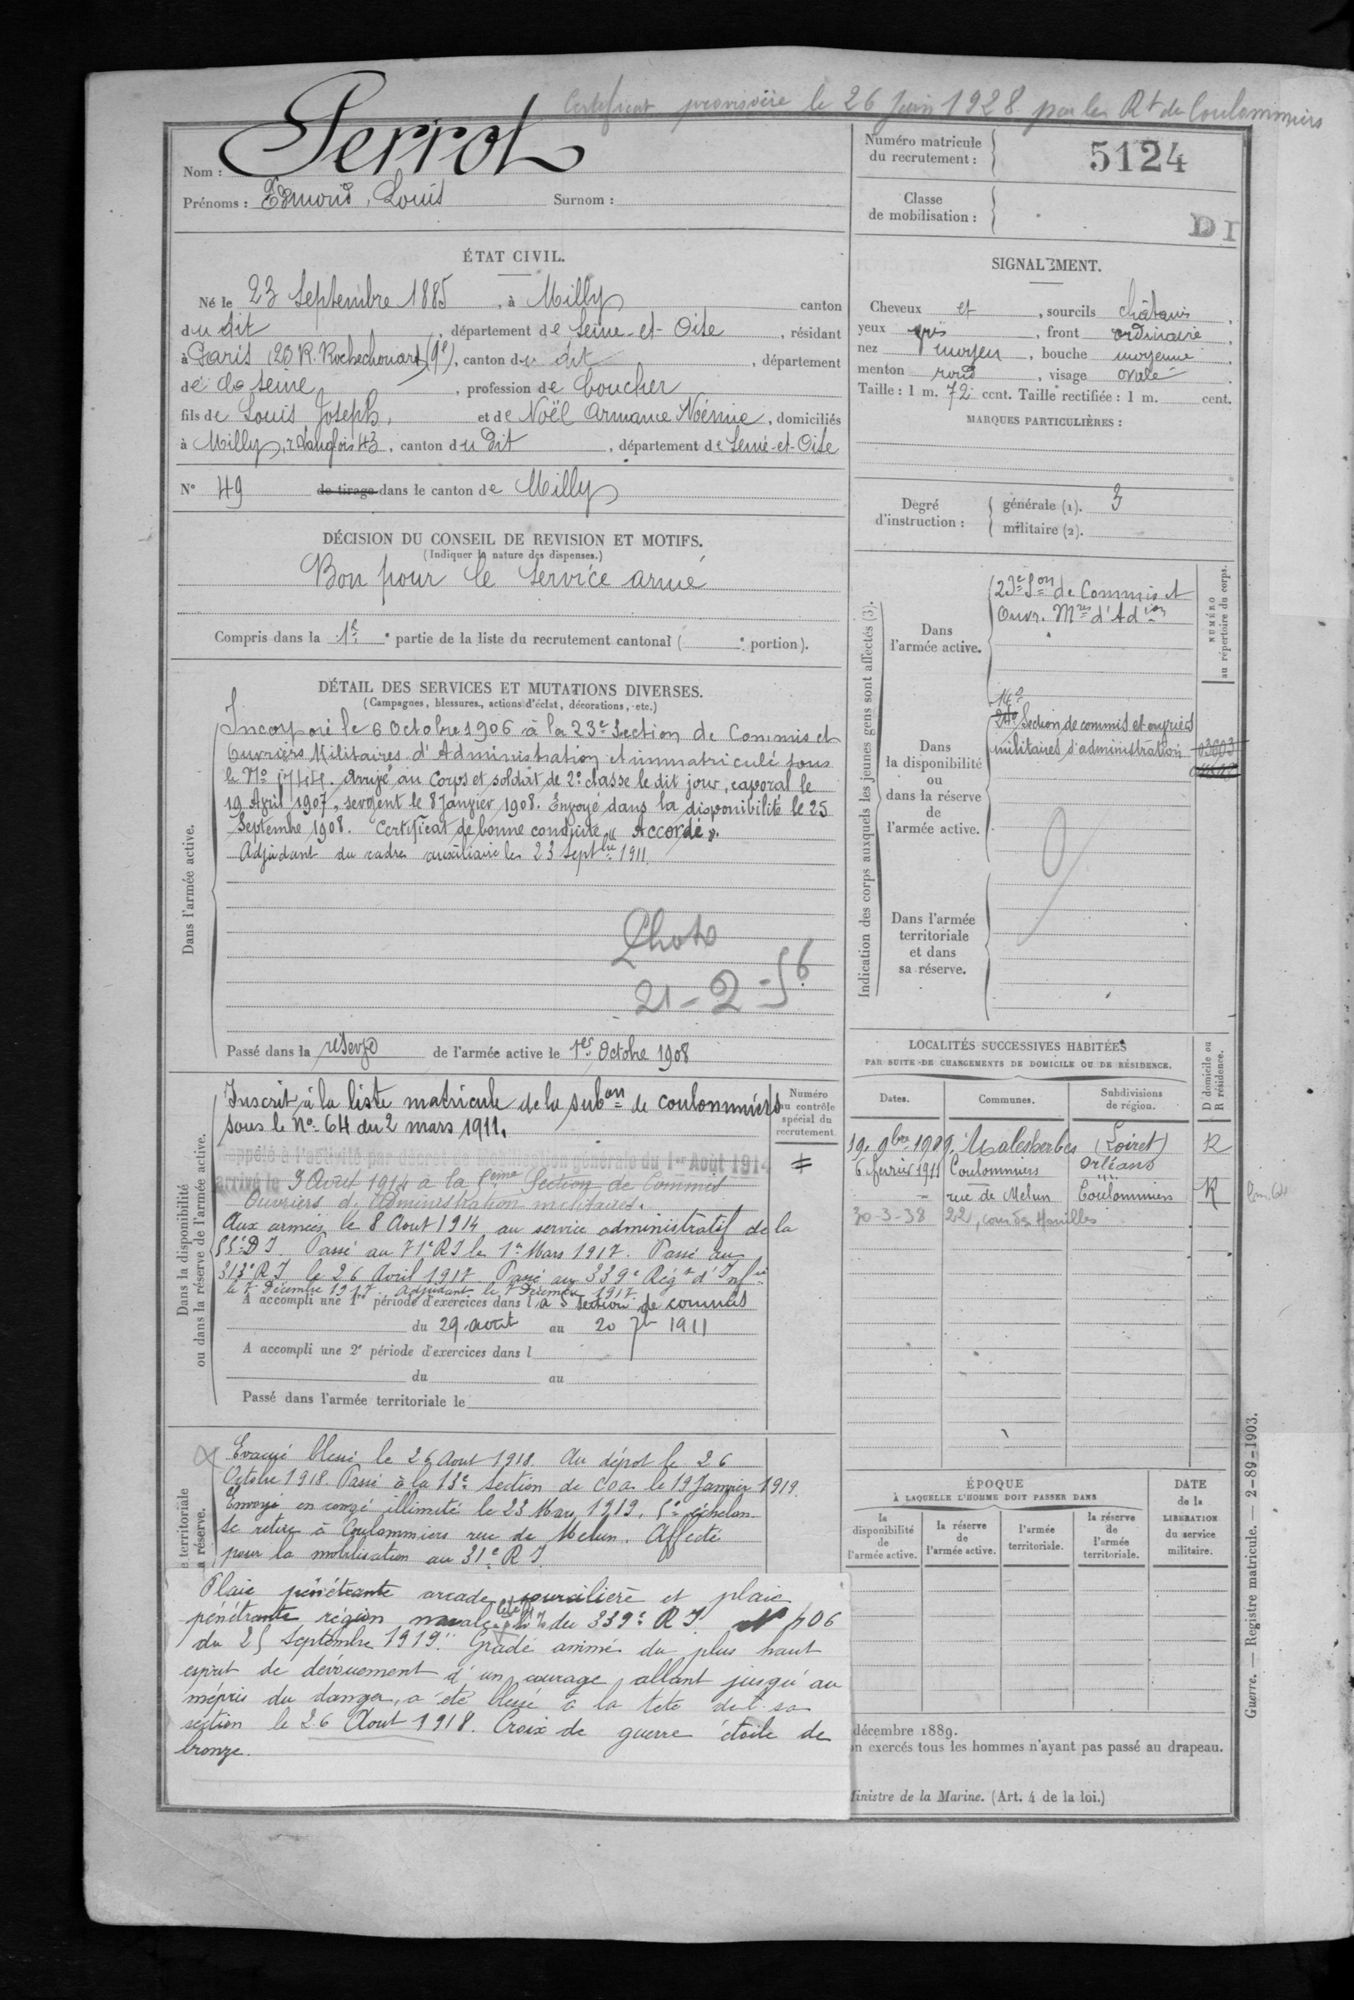 Certificat provisoire le 26 Juin 1928 par les Rt de Coulommiers
Nom : Perrot
Prénoms : Edmond, Louis Surnom :
Numéro matricule
du recrutement :
5124
Classe
de mobilisation :
DI
ÉTAT CIVIL.
Né le 23 Septembre 1885, à Milly canton
du dit, département de Seine-et-Oise, résidant
à Paris (20 R. Rochechouart (9e), canton du dit, département
de la Seine, profession de boucher
fils de Louis Joseph, et de Noël Armance Noémie, domiciliés
à Milly, r. Langlois 43, canton du dit, département de Seine-et-Oise
N° 49 de tirage dans le canton de Milly
SIGNALEMENT.
Cheveux et, sourcils châtains,
yeux gris, front ordinaire,
nez moyen, bouche moyenne
menton rond, visage ovale
Taille : 1 m. 72 cent. Taille rectifiée : 1 m. cent.
MARQUES PARTICULIÈRES :
Degré
d'instruction :
générale (1). 3
militaire (2).
DÉCISION DU CONSEIL DE REVISION ET MOTIFS.
(Indiquer la nature des dispenses.)
Bon pour le Service armé
Compris dans la 1e partie de la liste du recrutement cantonal ( portion).
DÉTAIL DES SERVICES ET MUTATIONS DIVERSES.
(Campagnes, blessures, actions d'éclat, décorations, etc.)
Dans l'armée active.
Incorporé le 6 Octobre 1906 à la 23e Section de Commis et
Ouvriers Militaires d'Administration et immatriculé sous
le No 1744. Arrivé au Corps et soldat de 2e classe le dit jour, caporal le
19 Avril 1907, sergent le 8 Janvier 1908. Envoyé dans la disponibilité le 25
Septembre 1908. Certificat de bonne conduite « Accordé ».
Adjudant du cadre auxiliaire le 23 Septbre 1911.
Photo
21-2-56
Passé dans la réserve de l'armée active le 1er Octobre 1908
Indication des corps auxquels les jeunes gens sont affectés (3).
NUMÉRO
au répertoire du corps.
Dans
l'armée active.
23e Son de Commis et
Ouvr. Mres d'Adion
Dans
la disponibilité
ou
dans la réserve
de
l'armée active.
Section de commis et ouvriers
militaires d'administration
Dans l'armée
territoriale
et dans
sa réserve.
Dans la disponibilité
ou dans la réserve de l'armée active.
Numéro
au contrôle
spécial du
recrutement.
Inscrit à la liste matricule de la subon de Coulommiers
sous le No 64 du 2 mars 1911.
Rappelé à l'activité par décret de Mobilisation générale du 1er Août 1914
arrivé le 3 Aout 1914 à la 5ème Section de Commis
Ouvriers d'Administration militaires.
Aux armées le 8 Aout 1914 au service administratif de la
55e DI. Passé au 71e RI le 1er Mars 1917. Passé au
313e RI le 26 Avril 1917 Passé au 339e Régt d'Infie
le 7 Décembre 1917. Adjudant le 7 Décembre 1917.
A accompli une 1re période d'exercices dans la 5 Section de commis
du 29 août au 20 7bre 1911
A accompli une 2e période d'exercices dans l
du au
Passé dans l'armée territoriale le
LOCALITÉS SUCCESSIVES HABITÉES
PAR SUITE DE CHANGEMENTS DE DOMICILE OU DE RÉSIDENCE.
D domicile ou
R résidence.
Dates. Communes. Subdivisions
de région.
19 9bre 1909. Malesherbes (Loiret) R
6 février 1911 Coulommiers Orléans
rue de Melun Coulommiers R
30-3-38 22, cour des
e territoriale
a réserve.
Evacué blessé le 26 Aout 1918. Au dépot le 26
Octobre 1918. Passé à la 13e Section de COA le 19 Janvier 1919.
Envoyé en congé illimité le 23 Mars 1919, 5e échelon
Se retire à Coulommiers rue de Melun. Affecté
pour la mobilisation au 31e RI
Plaie pénétrante arcade sourcilière et plaie
pénétrante région nasale du 339e RI No 406
du 25 Septembre 1919 "Gradé animé du plus haut
esprit de dévouement d'un courage allant jusqu'au
mépris du danger, a été blessé à la tete de sa
section le 26 Aout 1918. Croix de guerre étoile de
bronze.
ÉPOQUE
À LAQUELLE L'HOMME DOIT PASSER DANS
DATE
de la
LIBÉRATION
du service
militaire.
la
disponibilité
de
l'armée active.
la réserve
de
l'armée active.
l'armée
territoriale.
la réserve
de
l'armée
territoriale.
décembre 1889.
n exercés tous les hommes n'ayant pas passé au drapeau.
Ministre de la Marine. (Art. 4 de la loi.)
Guerre. — Registre matricule. — 2-89-1903.